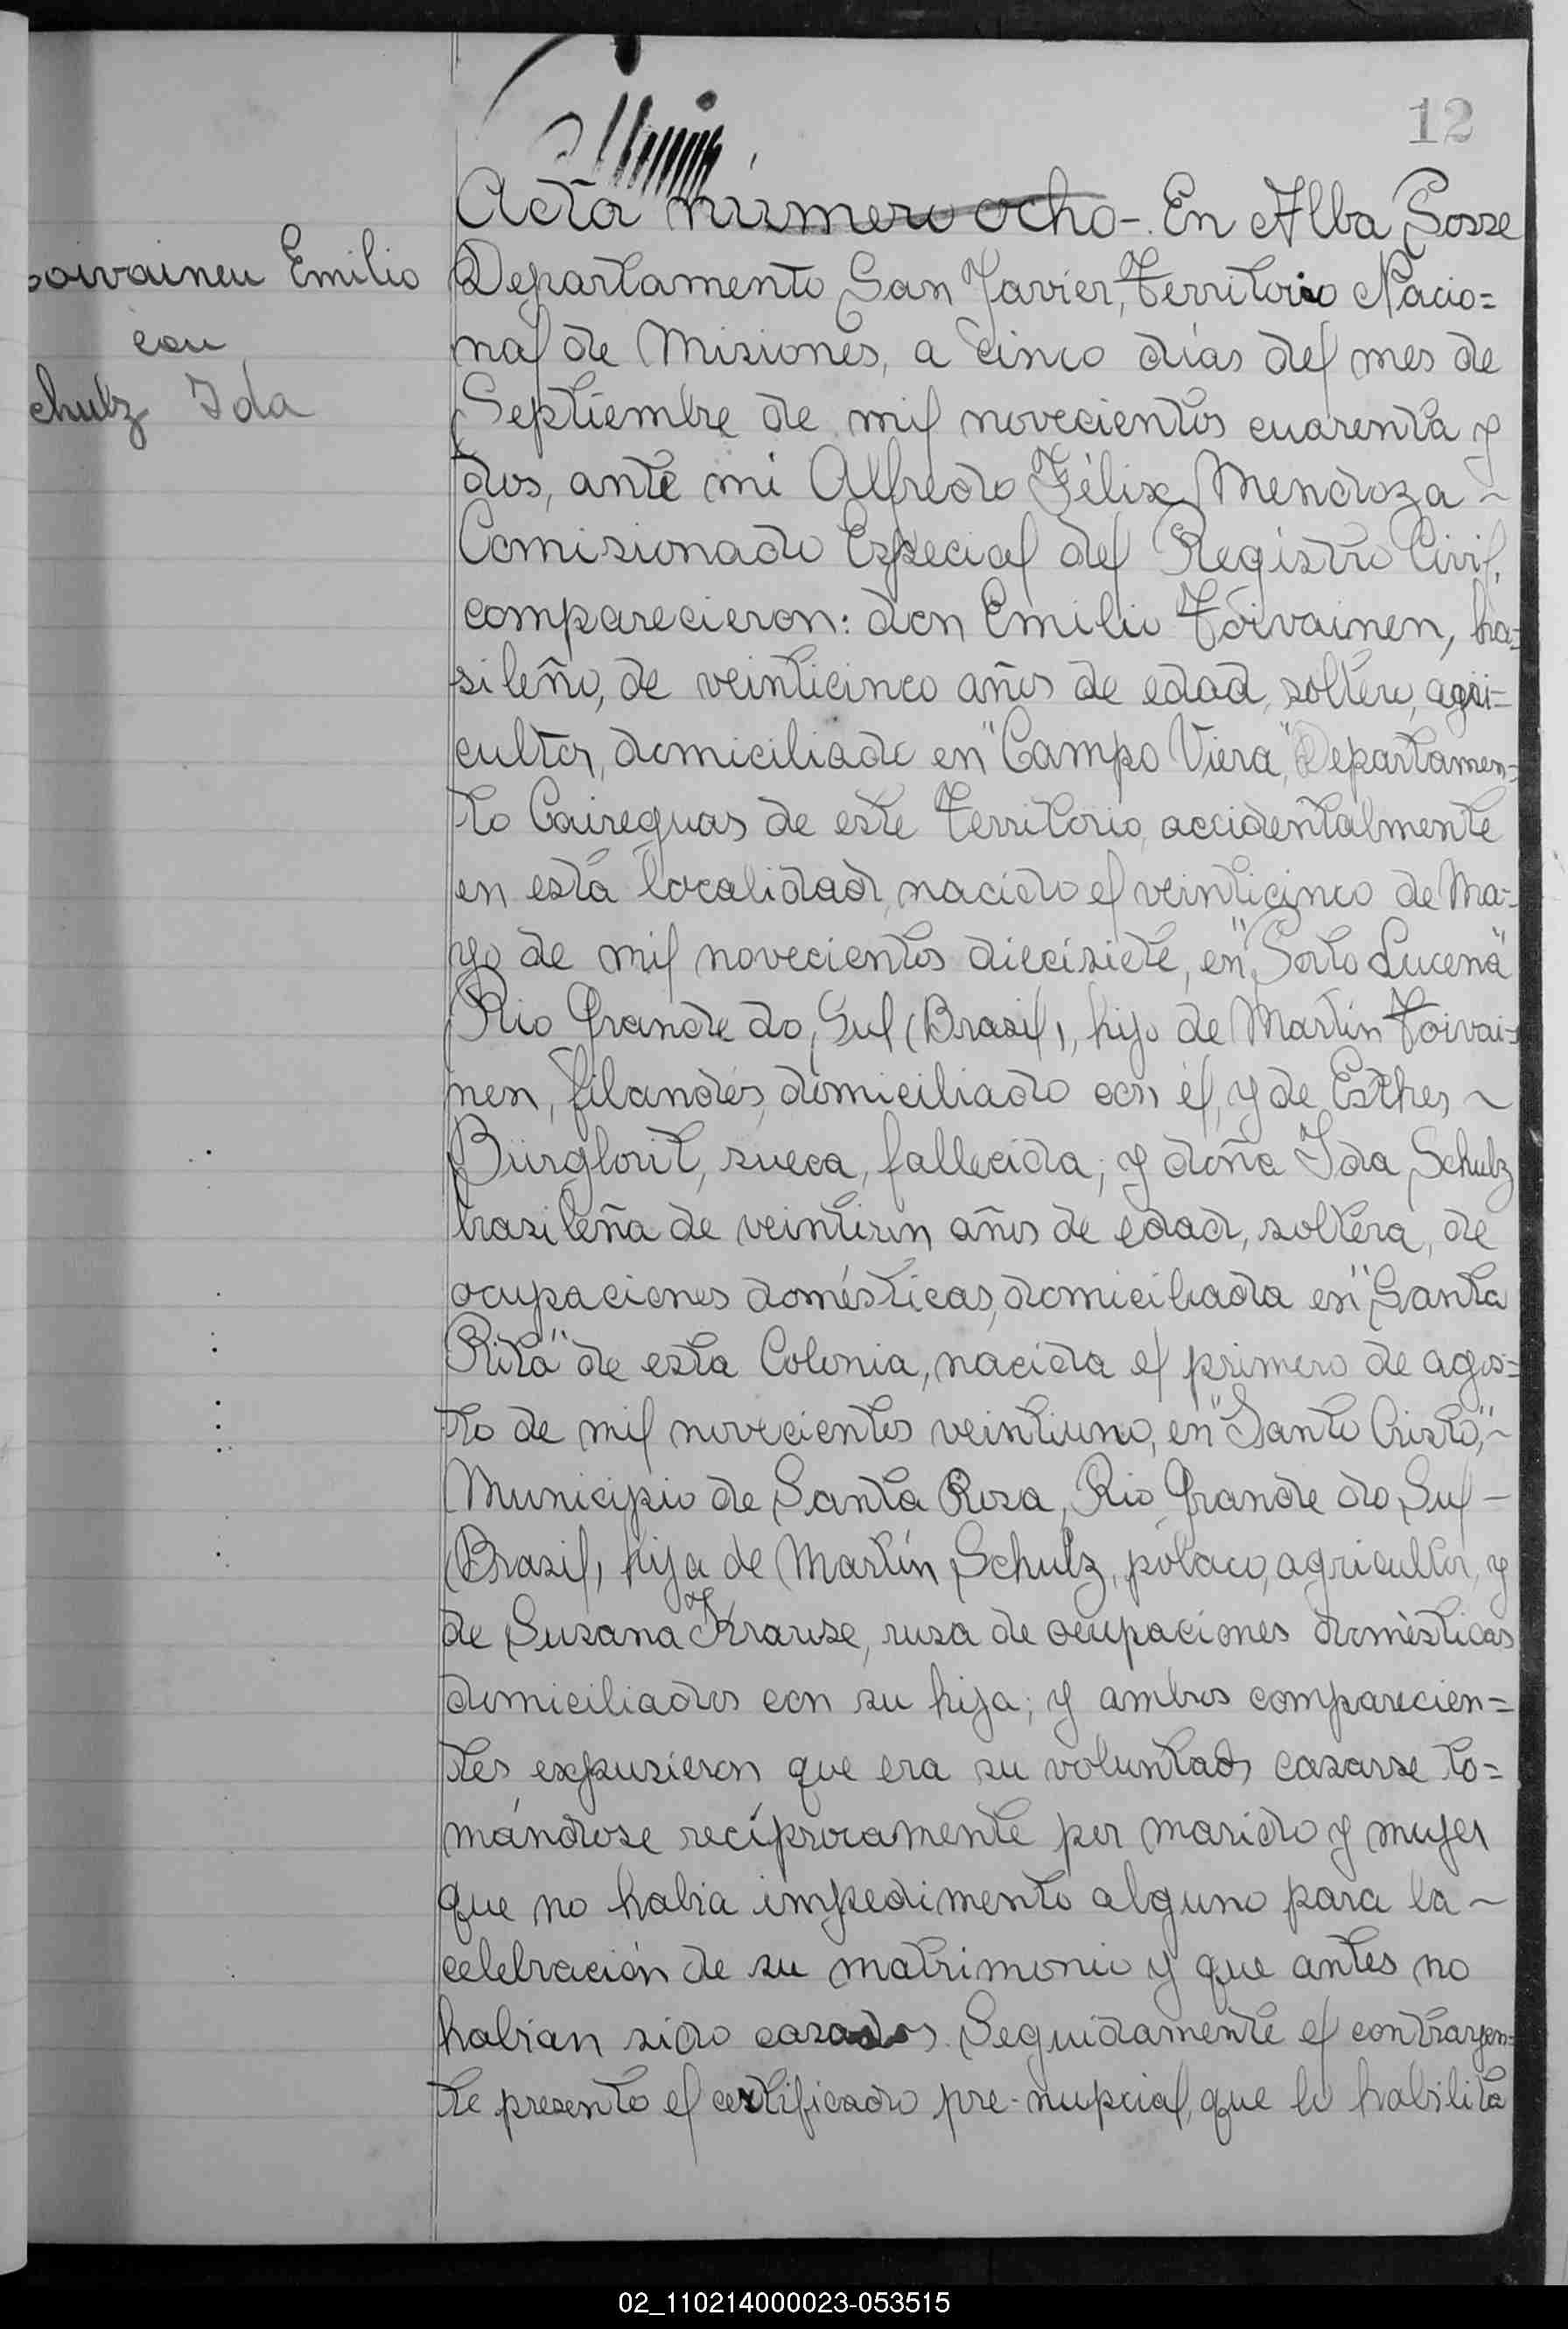 12
oivaineu Emilio
con
chulz Ida
Acta número ocho-. En Alba Posse
Departamento San Javier, Territorio Nacio=
nal de Misiones, a cinco días del mes de
Septiembre de mil novecientos cuarenta y
dos, ante mi Alfredo Félix Mendoza ~
Comisionado Especial del Registro Civil,
comparecieron: don Emilio Toivainen, bra=
sileño, de veinticinco años de edad, soltero, agri=
cultor, domiciliado en "Campo Viera", Departamen=
to Caireguas de este Territorio, accidentalmente
en esta localidad, nacido el veinticinco de Ma=
yo de mil novecientos diecisiete, en "Porto Lucena"
Rio Grande do Sul (Brasil), hijo de Martín Toivai=
nen, filandés, domiciliado con él, y de Esther ~
sueca, fallecida; y doña Ida Schulz
brasileña de veintiún años de edad, soltera, de
ocupaciones domésticas, domiciliada en "Santa
Rita" de esta Colonia, nacida el primero de agos=
to de mil novecientos veintiuno, en "Santo Cristo", ~
Municipio de Santa Rosa, Rio Grande do Sul -
(Brasil), hija de Martín Schulz, polaco, agricultor, y
de Susana Krause, rusa de ocupaciones domésticas
domiciliados con su hija; y ambos comparecien=
tes expusieron que era su voluntad casarse to=
mándose recíprocamente por marido y mujer
que no habia impedimento alguno para la ~
celebración de su matrimonio y que antes no
habían sido casados. Seguidamente el contrayen=
te presento el certificado pre-nupcial, que lo habilita
02_110214000023-053515